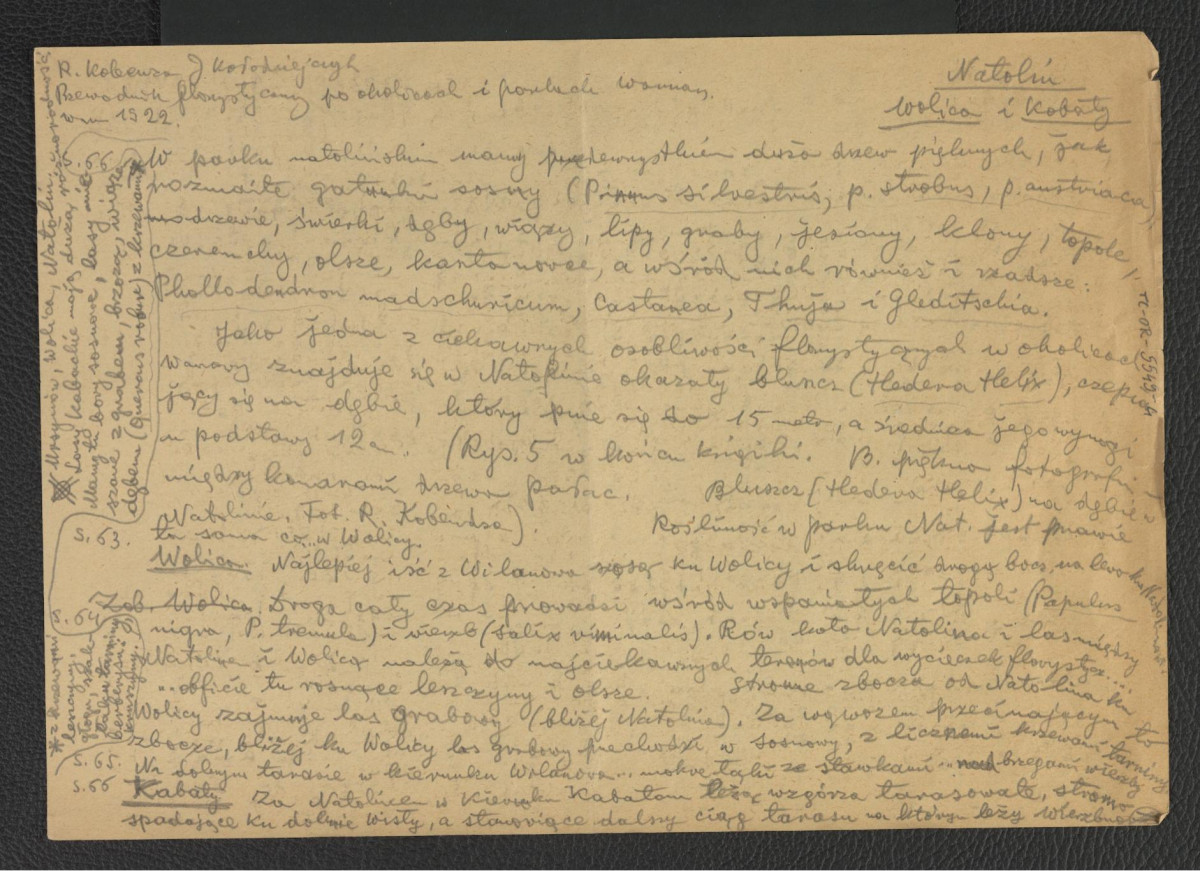 R. Kobenza J Kołodziejczyk
Przewodnik florystyczny po okolicach i parkach warszaw.
w-wa 1922.
Natolin
Wolica i Kabaty
W parku natolińskim mamy przedewszystkiem dużo drzew pięknych, jak
rozmaite gatunki sosny (Pinus silvestris, p. strobus, p. austriaca),
modrzewie, świerki, dęby, wiązy, lipy, graby, jesiony, klony, topole,
czeremchy, olsze, kasztanowce, a wśród nich również i rzadsze:
Phellodendron madschuricum, Castanea, Thuja i Gleditschia.
Jako jedna z ciekawych osobliwości florystycznych w okolicach
Warszawy znajduje się w Natolinie okazały bluszcz (Hedera Helix), czepia
jący się na dębie, który pnie się do 15 metr, a średnica jego wynosi
u podstawy 12 cm. (Rys. 5 w końcu książki. B. piękna fotografia
między konarami drzewa pałac. Bluszcz (Hedera Helix) na dębie w
Natolinie. Fot. R. Kobendza). Roślinność w parku Nat. jest prawie
ta sama co.. w Wolicy.
s. 63.
Wolica. Najlepiej iść z Wilanowa szosą ku Wolicy i skręcić drogą bocz. na lewo ku Natolinowi.
s. 64
Zob. Wolica. Droga cały czas prowadzi wśród wspaniałych topoli (Populus
nigra, P. tremula) i wierzb (Salix viminalis). Rów koło Natolina i las między
Natolinem i Wolicą należą do najciekawszych terenów dla wycieczek florystycz....
...obficie tu rosnące leszczyny i olsze. Strome zbocza od Natolina ku
Wolicy zajmuje las grabowy (bliżej Natolina). Za wąwozem przecinającym to
zbocze, bliżej ku Wolicy las grabowy przechodzi w sosnowy, z licznemi krzewami tarniny
s. 65.
Na dolnym tarasie w kierunku Wilanowa... mokre łąki ze stawkami ... nad brzegami wierzby
s. 66
Kabaty Za Natolinem w kierunku Kabatom leżą wzgórza tarasowate, stromo
spadające ku dolinie Wisły, a stanowiące dalszy ciąg tarasu na którym leży
Ursynów, Wolica, Natolin
Lasy kabackie mają dużą różnorodność
Mamy tu bory sosnowe, lasy mie-
szane z grabem, brzozą, wiązem,
dębem (Quercus robur) z krzewami*
s. 66
* z krzewami
leszczyny,
głogu, szak-
łaku, tarniny
berberysu i
kruszyny.